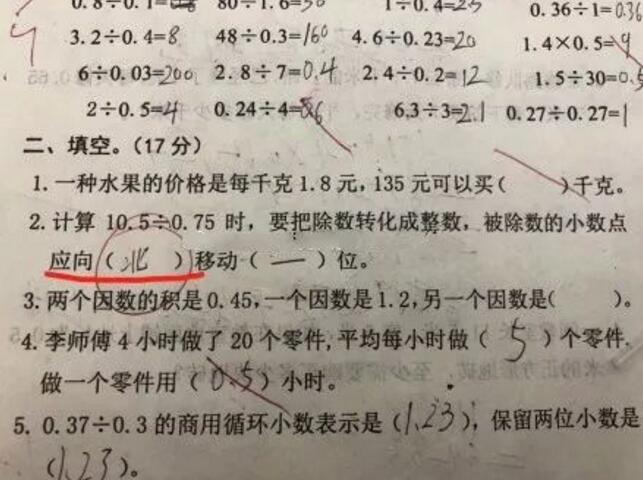 0.8÷0.1= 80÷1.6=50 1÷0.4=25 0.36÷1=0.36
3.2÷0.4=8 48÷0.3=160 4.6÷0.23=20 1.4×0.5=
6÷0.03=200 2.8÷7=0.4 2.4÷0.2=12 1.5÷30=0.5
2÷0.5=4 0.24÷4=0.6 6.3÷3=2.1 0.27÷0.27=1
二、填空。(17分)
1.一种水果的价格是每千克1.8元,135元可以买( )千克。
2.计算 10.5÷0.75 时,要把除数转化成整数,被除数的小数点
应向(北)移动(一)位。
3.两个因数的积是0.45,一个因数是1.2,另一个因数是( )。
4.李师傅4小时做了20个零件,平均每小时做(5)个零件.
做一个零件用(0.5)小时。
5.0.37÷0.3的商用循环小数表示是(1.23),保留两位小数是
(1.23)。